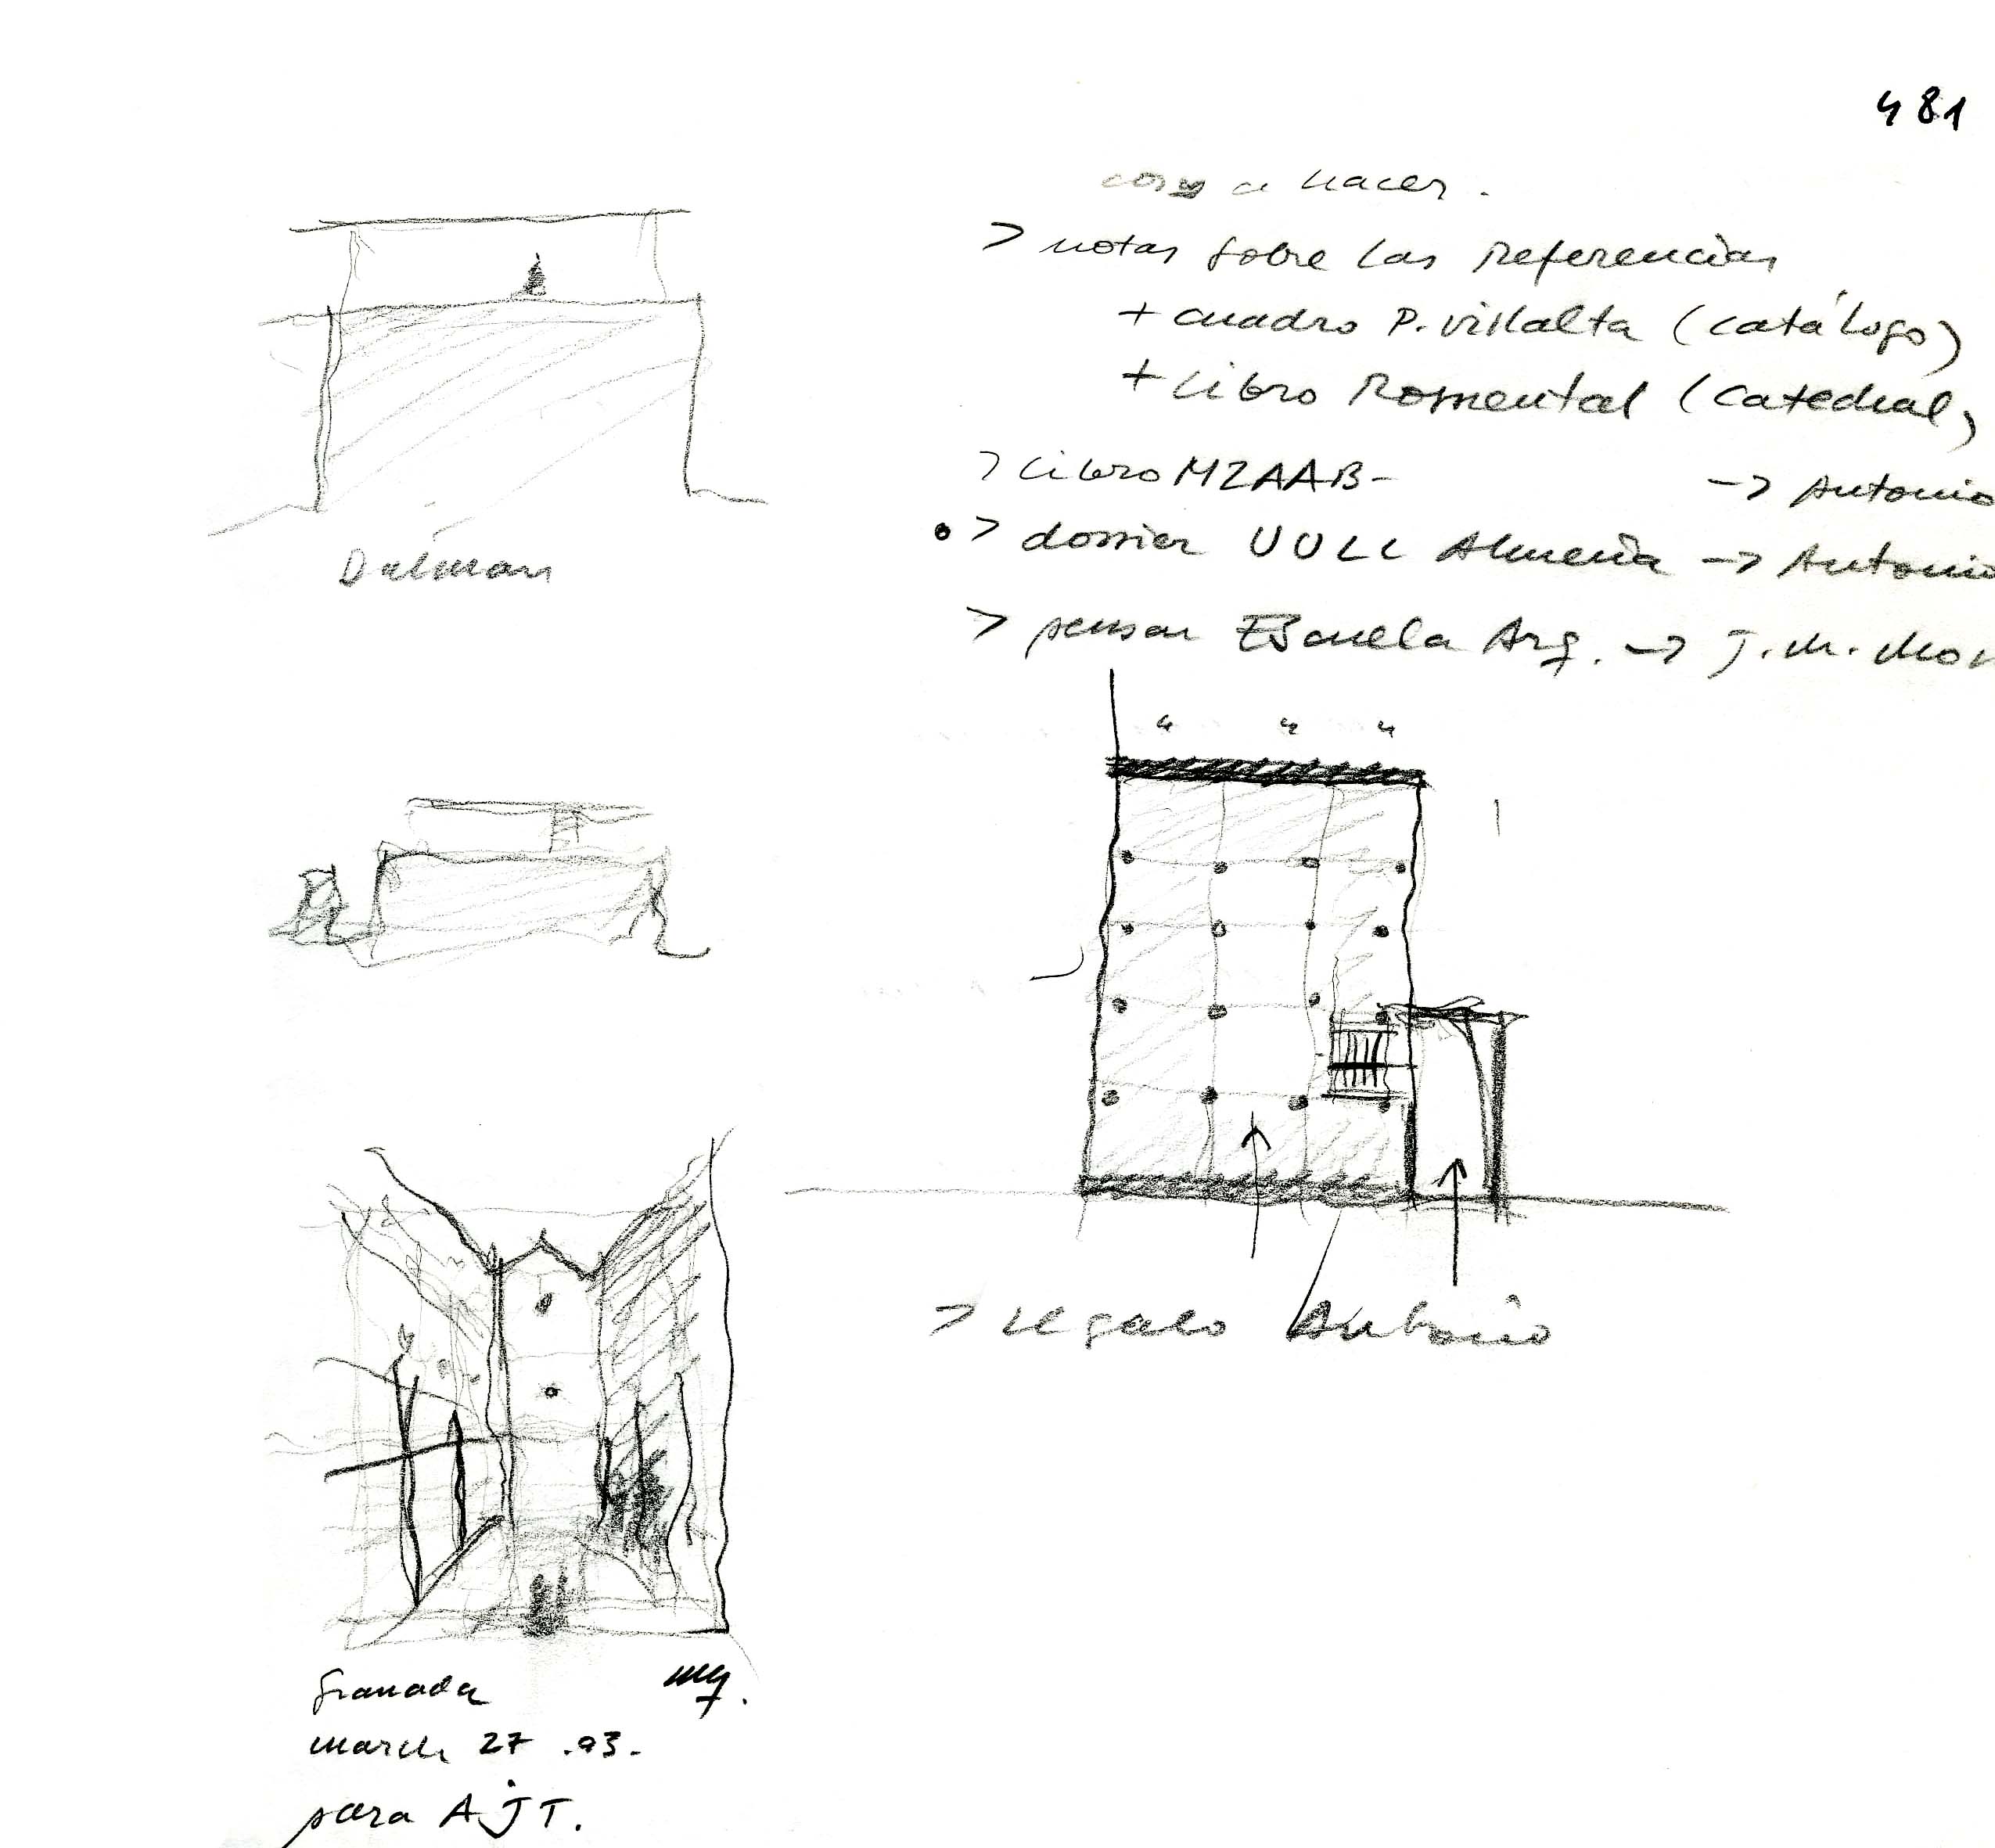 481
a hacer.
> notas sobre las referencias
+ cuadro P. villalta (catálogo)
+ libro Romental (catedral,
> libro MZAAB- -> Antonio
• > dossier UULL Almería -> Antonio
> pensar Escuela Arq. -> J.M. Mor
4 4 4
> regalo Antonio
Granada
march 27 .93.
para AJT.